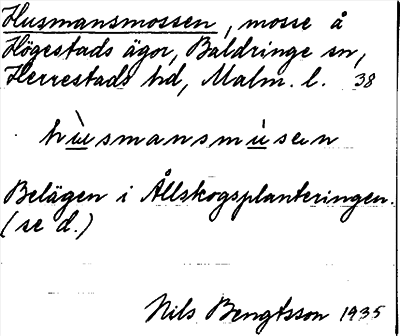 Husmansmossen, mosse å
Högestads ägor, Baldringe sn,
Herrestads hd, Malm. l. 38
hùsmansmùsen
Belägen i Ållskogsplanteringen.
(se d.)
Nils Bengtsson 1935